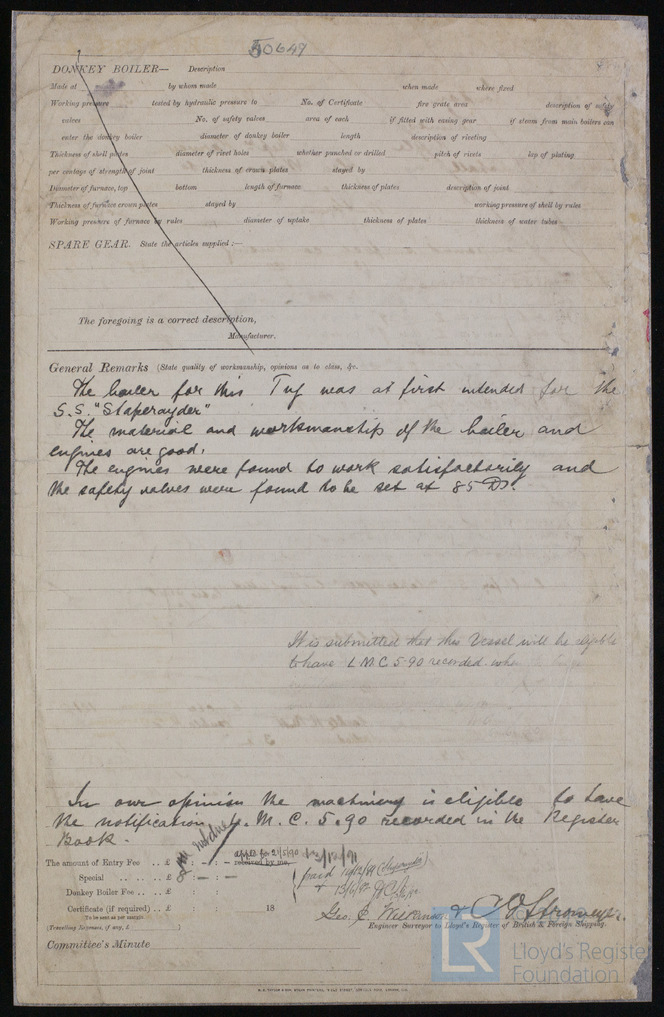 50649
DONKEY BOILER— Description
Made at by whom made when made where fixed
Working pressure tested by hydraulic pressure to No. of Certificate fire grate area description of safety
valves No. of safety valves area of each if fitted with easing gear if steam from main boilers can
enter the donkey boiler diameter of donkey boiler length description of riveting
Thickness of shell plates diameter of rivet holes whether punched or drilled pitch of rivets lap of plating
per centage of strength of joint thickness of crown plates stayed by
Diameter of furnace, top bottom length of furnace thickness of plates description of joint
Thickness of furnace crown plates stayed by working pressure of shell by rules
Working pressure of furnace by rules diameter of uptake thickness of plates thickness of water tubes
SPARE GEAR. State the articles supplied :—
The foregoing is a correct description,
Manufacturer.
General Remarks (State quality of workmanship, opinions as to class, &c.
The boiler for this Tug was at first intended for the
S.S.
The material and workmanship of the boiler and
engines are good.
The engines were found to work satisfactorily and
the safety valves were found to be set at 85
It is submitted that this Vessel will be eligible
to have L.M.C 5.90 recorded when
In our opinion the machinery is eligible to have
the notification L. M. C. 5.90 recorded in the Register
Book.
The amount of Entry Fee .. £ : :
received by me,
Special .. .. £ 8 : — : —
Donkey Boiler Fee .. .. £ : :
Certificate (if required) .. £ : : 18
To be sent as per margin.
(Travelling Expenses, if any, £ )
paid
Geo. C. & Stromeyer.
Engineer Surveyor to Lloyd's Register of British & Foreign Shipping.
Committee's Minute
LR
Lloyd's Register
Foundation